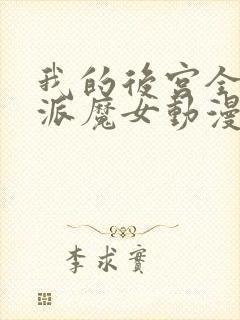 我的後宮全
派魔女動漫
李求實